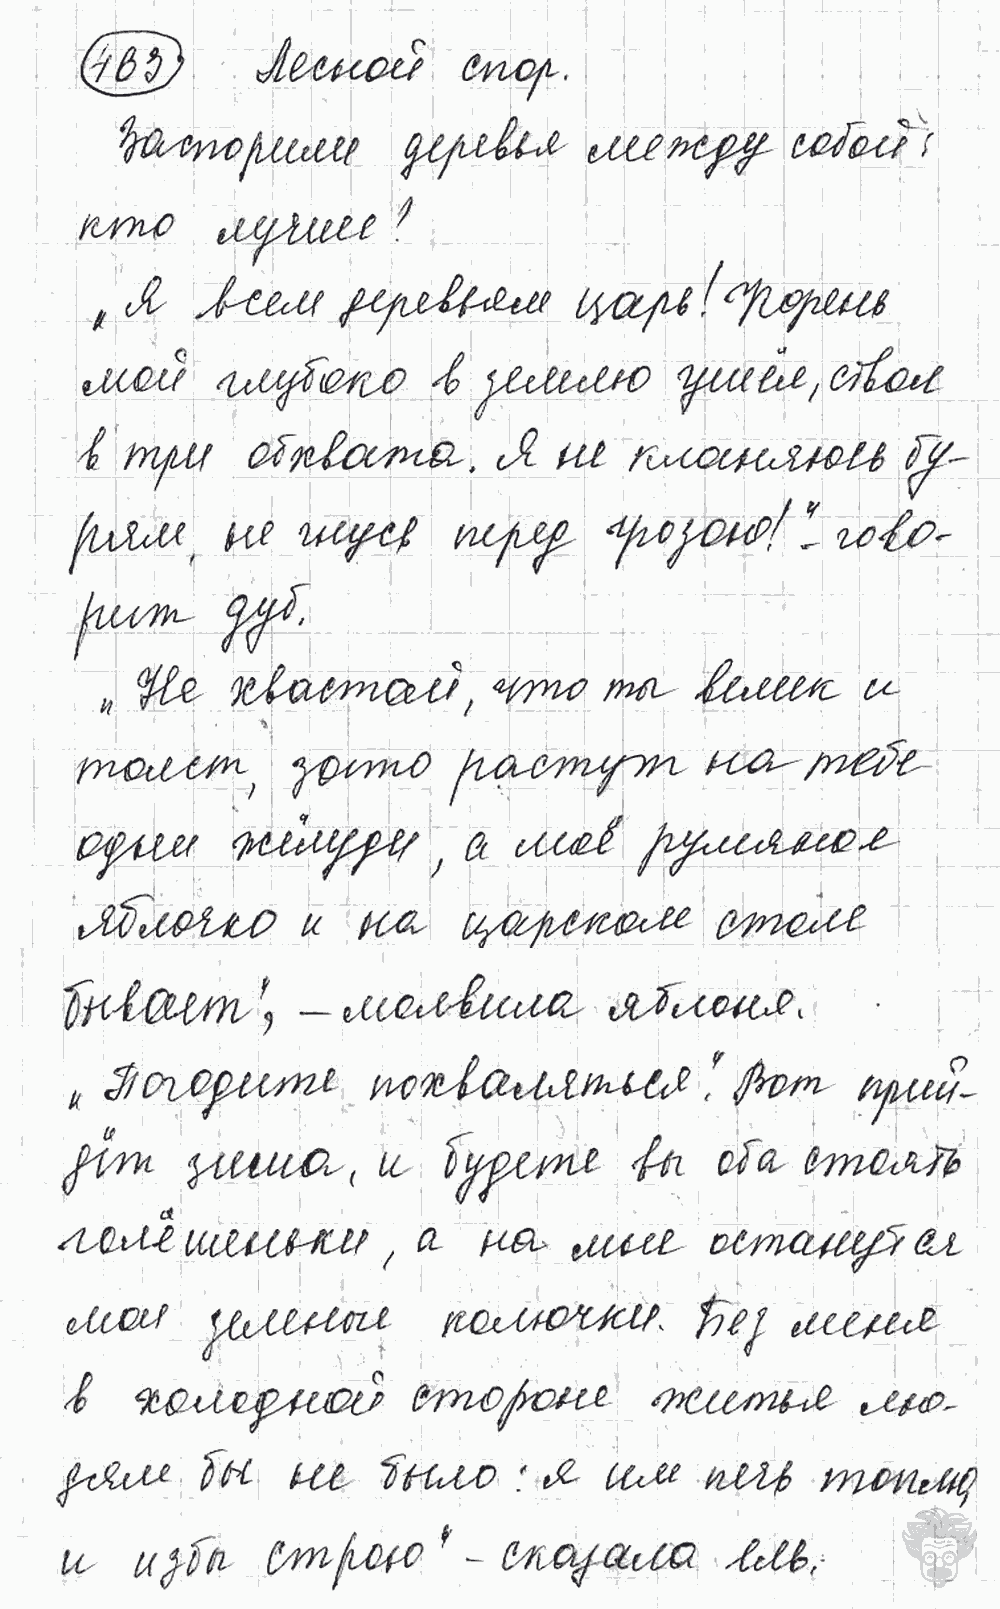 463 Лесной спор.
Заспорили деревья между собой:
кто лучше?
„Я всем деревьям царь! Корень
мой глубоко в землю ушёл, ствол
в три обхвата. Я не кланяюсь бу-
рям, не гнусь перед грозою!" - гово-
рит дуб.
„Не хвастай, что ты велик и
толст, зато растут на тебе
одни жёлуди, а моё румяное
яблочко и на царском столе
бывает", - молвила яблоня.
„Погодите похваляться". Вот прий-
дёт зима, и будете вы оба стоять
голёшеньки, а на мне останутся
мои зеленые колючки. Без меня
в холодной стороне житья лю-
дям бы не было: я им печь топлю,
и избы строю" - сказала ель.